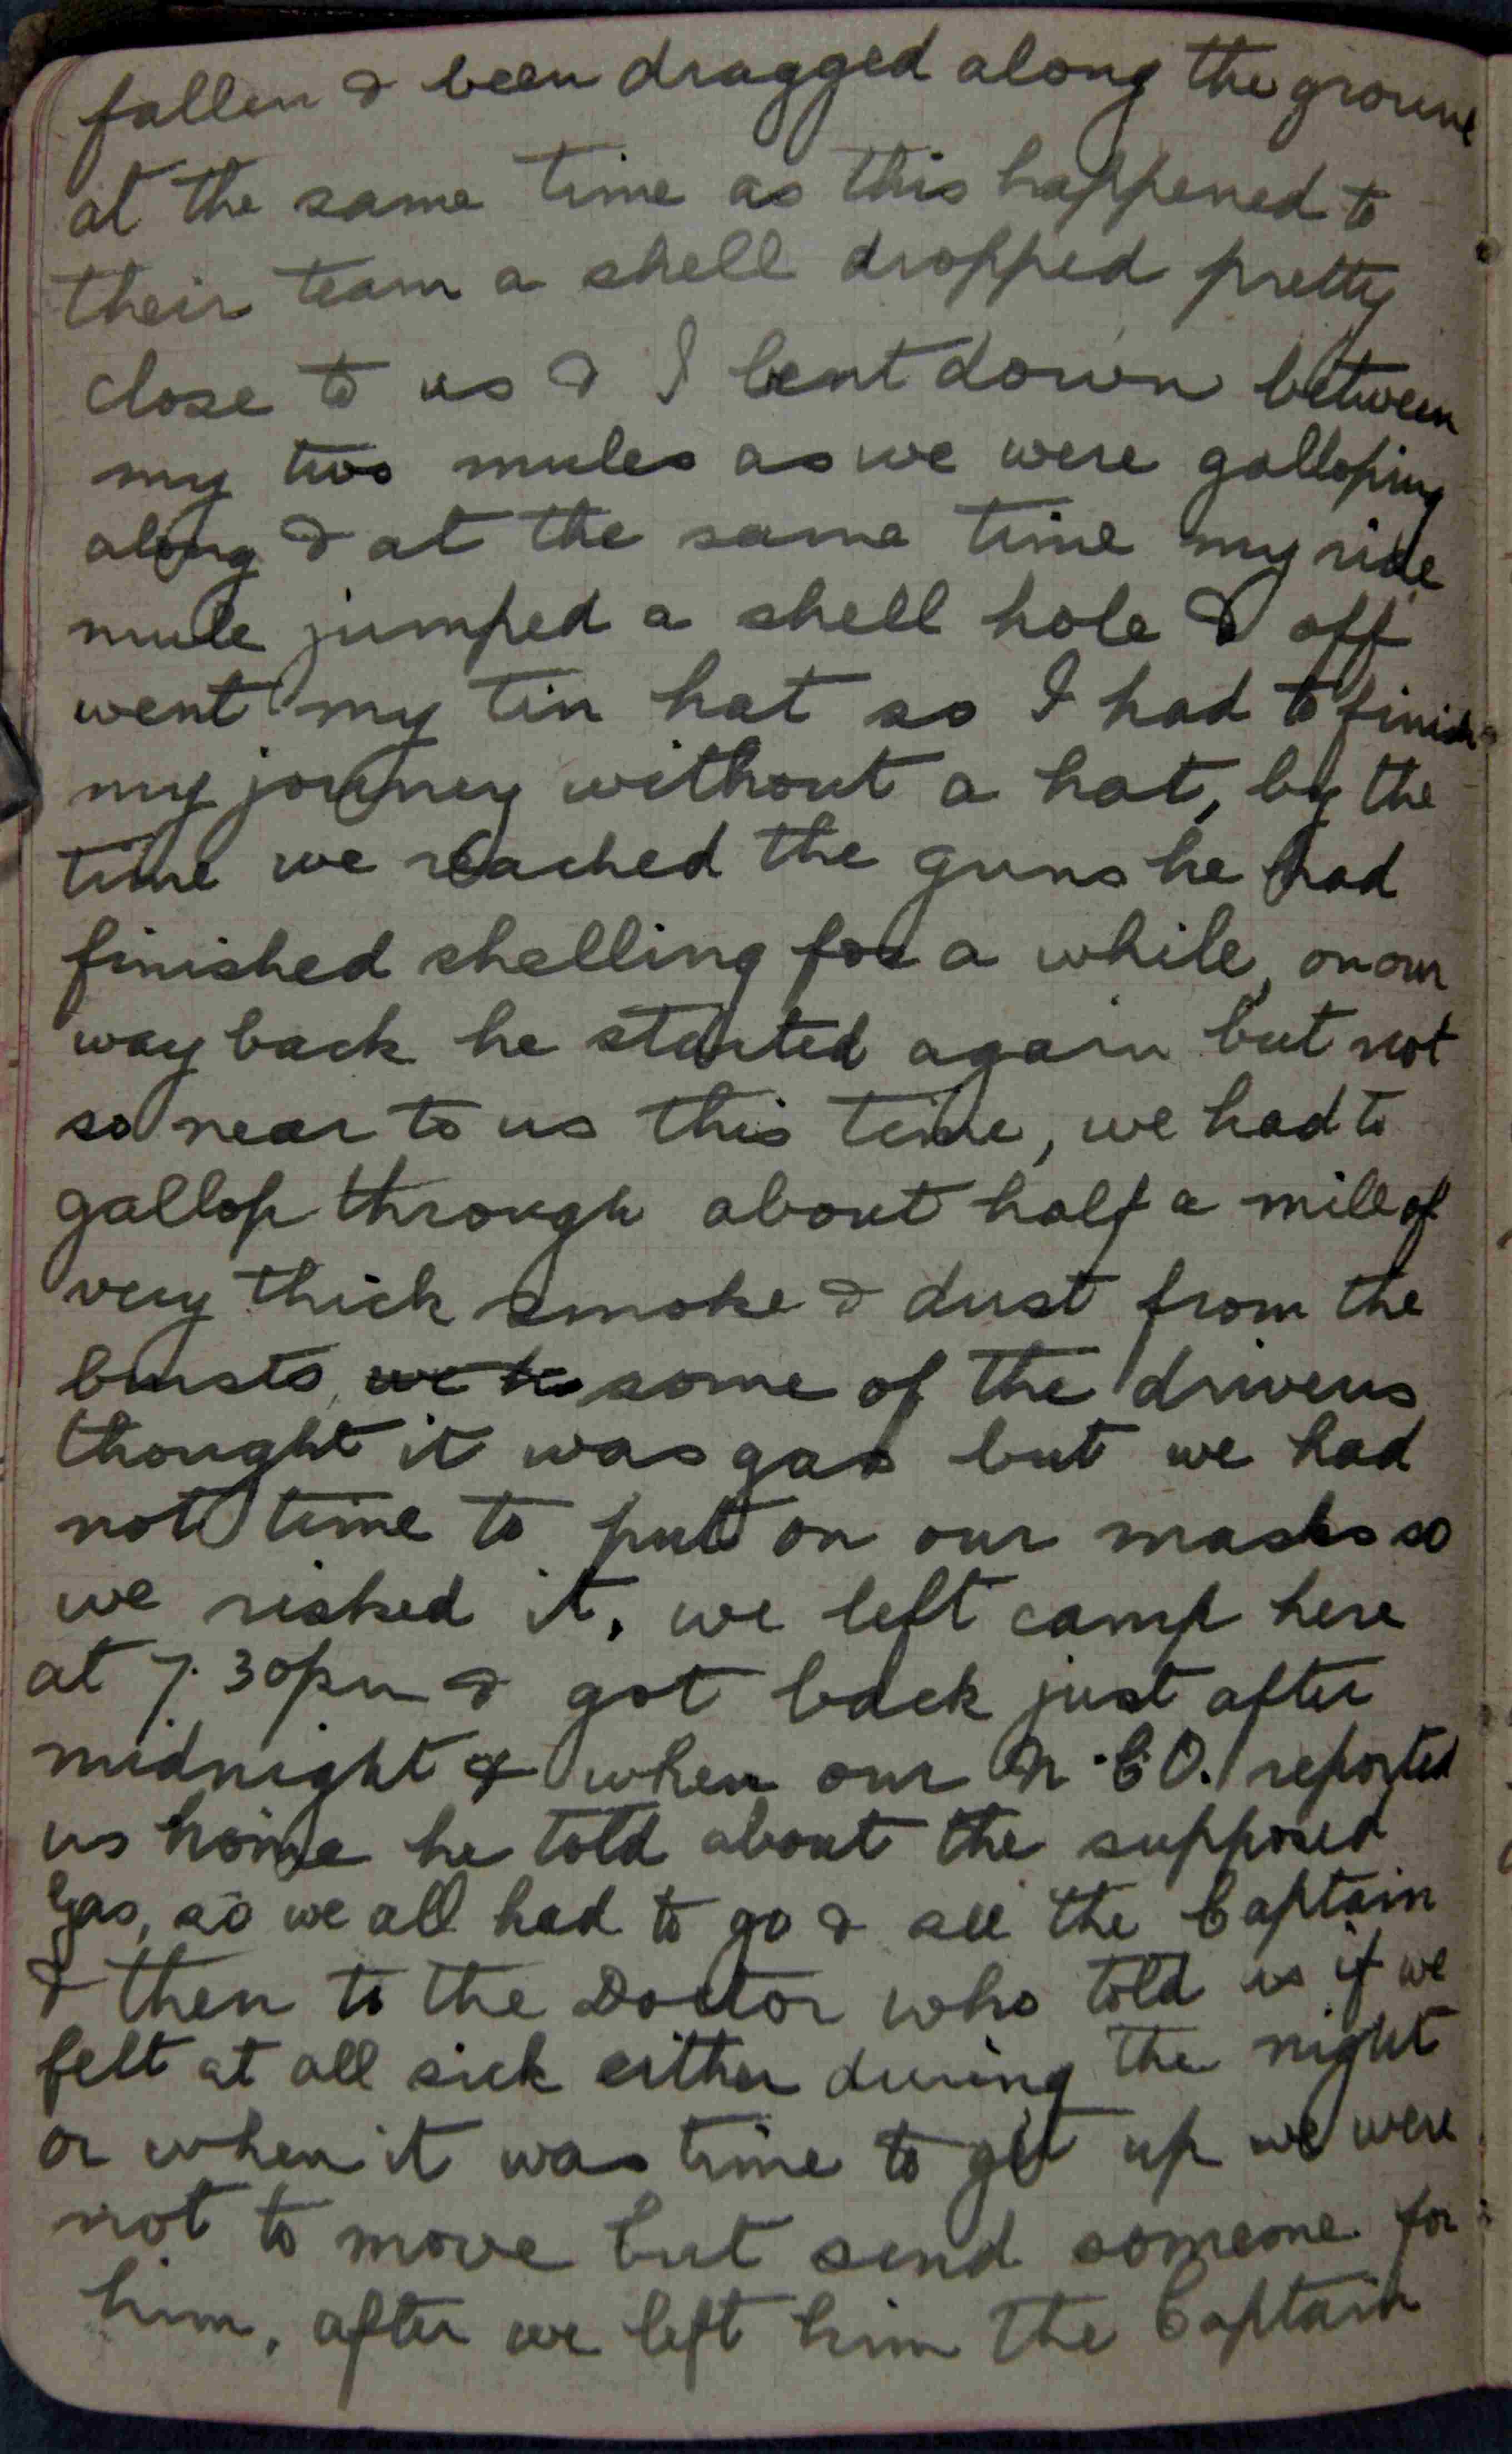 fallen & been dragged along the ground
at the same time as this happened to
their team a shell dropped pretty
close to us & I bent down between
my two mules as we were galloping
along & at the same time my ride
mule jumped a shell hole & off
went my tin hat so I had to finish
my journey without a hat, by the
time we reached the guns he had
finished shelling for a while, on our
way back he started again but not
so near to us this time, we had to
gallop through about half a mile of
very thick smoke & dust from the
bursts, we ha some of the drivers
thought it was gas but we had
not time to put on our masks so
we risked it, we left camp here
at 7.30pm & got back just after
midnight & when our N.C.O. reported
us home he told about the supposed
Gas, so we all had to go & see the Captain
& then to the Doctor who told us if we
felt at all sick either during the night
or when it was time to get up we were
not to move but send someone for
him, after we left him the Captain